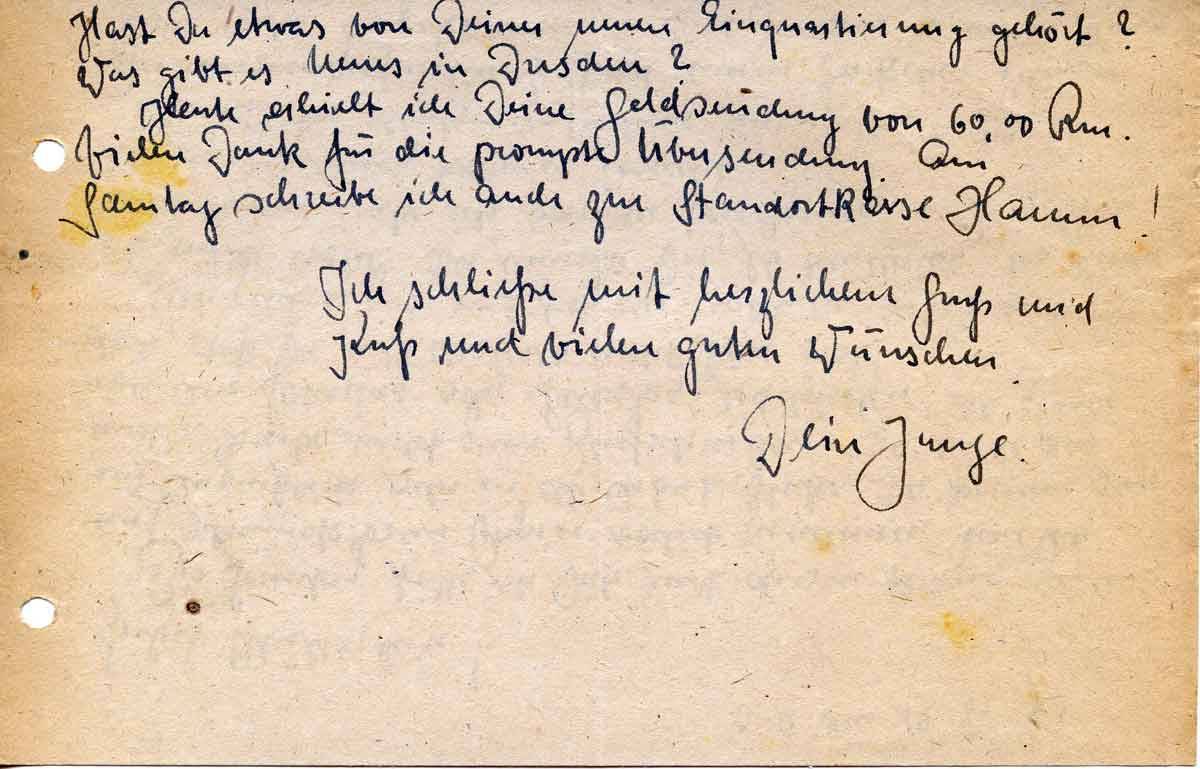 Hast Du etwas von Deiner neuen Einquartierung gehört?
Was gibt es Neues in Dresden?
Heute erhielt ich Deine Geldsendung von 60,00 Rm.
Vielen Dank für die prompte Übersendung. Am
Samstag schreibe ich auch zur Standortkasse Hamm!
Ich schließe mit herzlichem Gruß und
Kuß und vielen guten Wünschen
Dein Junge.